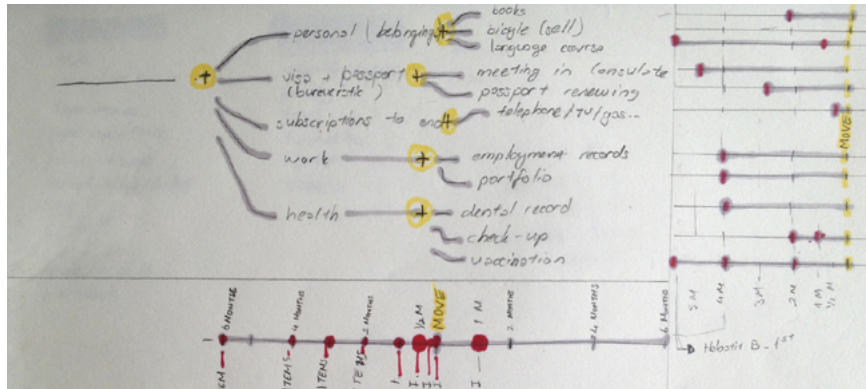 books
personal (belongings
bicycle (sell)
language course
visa + passport
(bureucratic)
meeting in consulate
passport renewing
subscriptions to end
telephone/tv/gas...
work
employment records
portfolio
health
dental record
check-up
vaccination
MOVE
5 M
4 M
3 M
2 M
1 M
½ M
6 MONTHS
4 MONTHS
2 MONTHS
½ M
MOVE
1 M
2 MONTHS
4 MONTHS
6 MONTHS